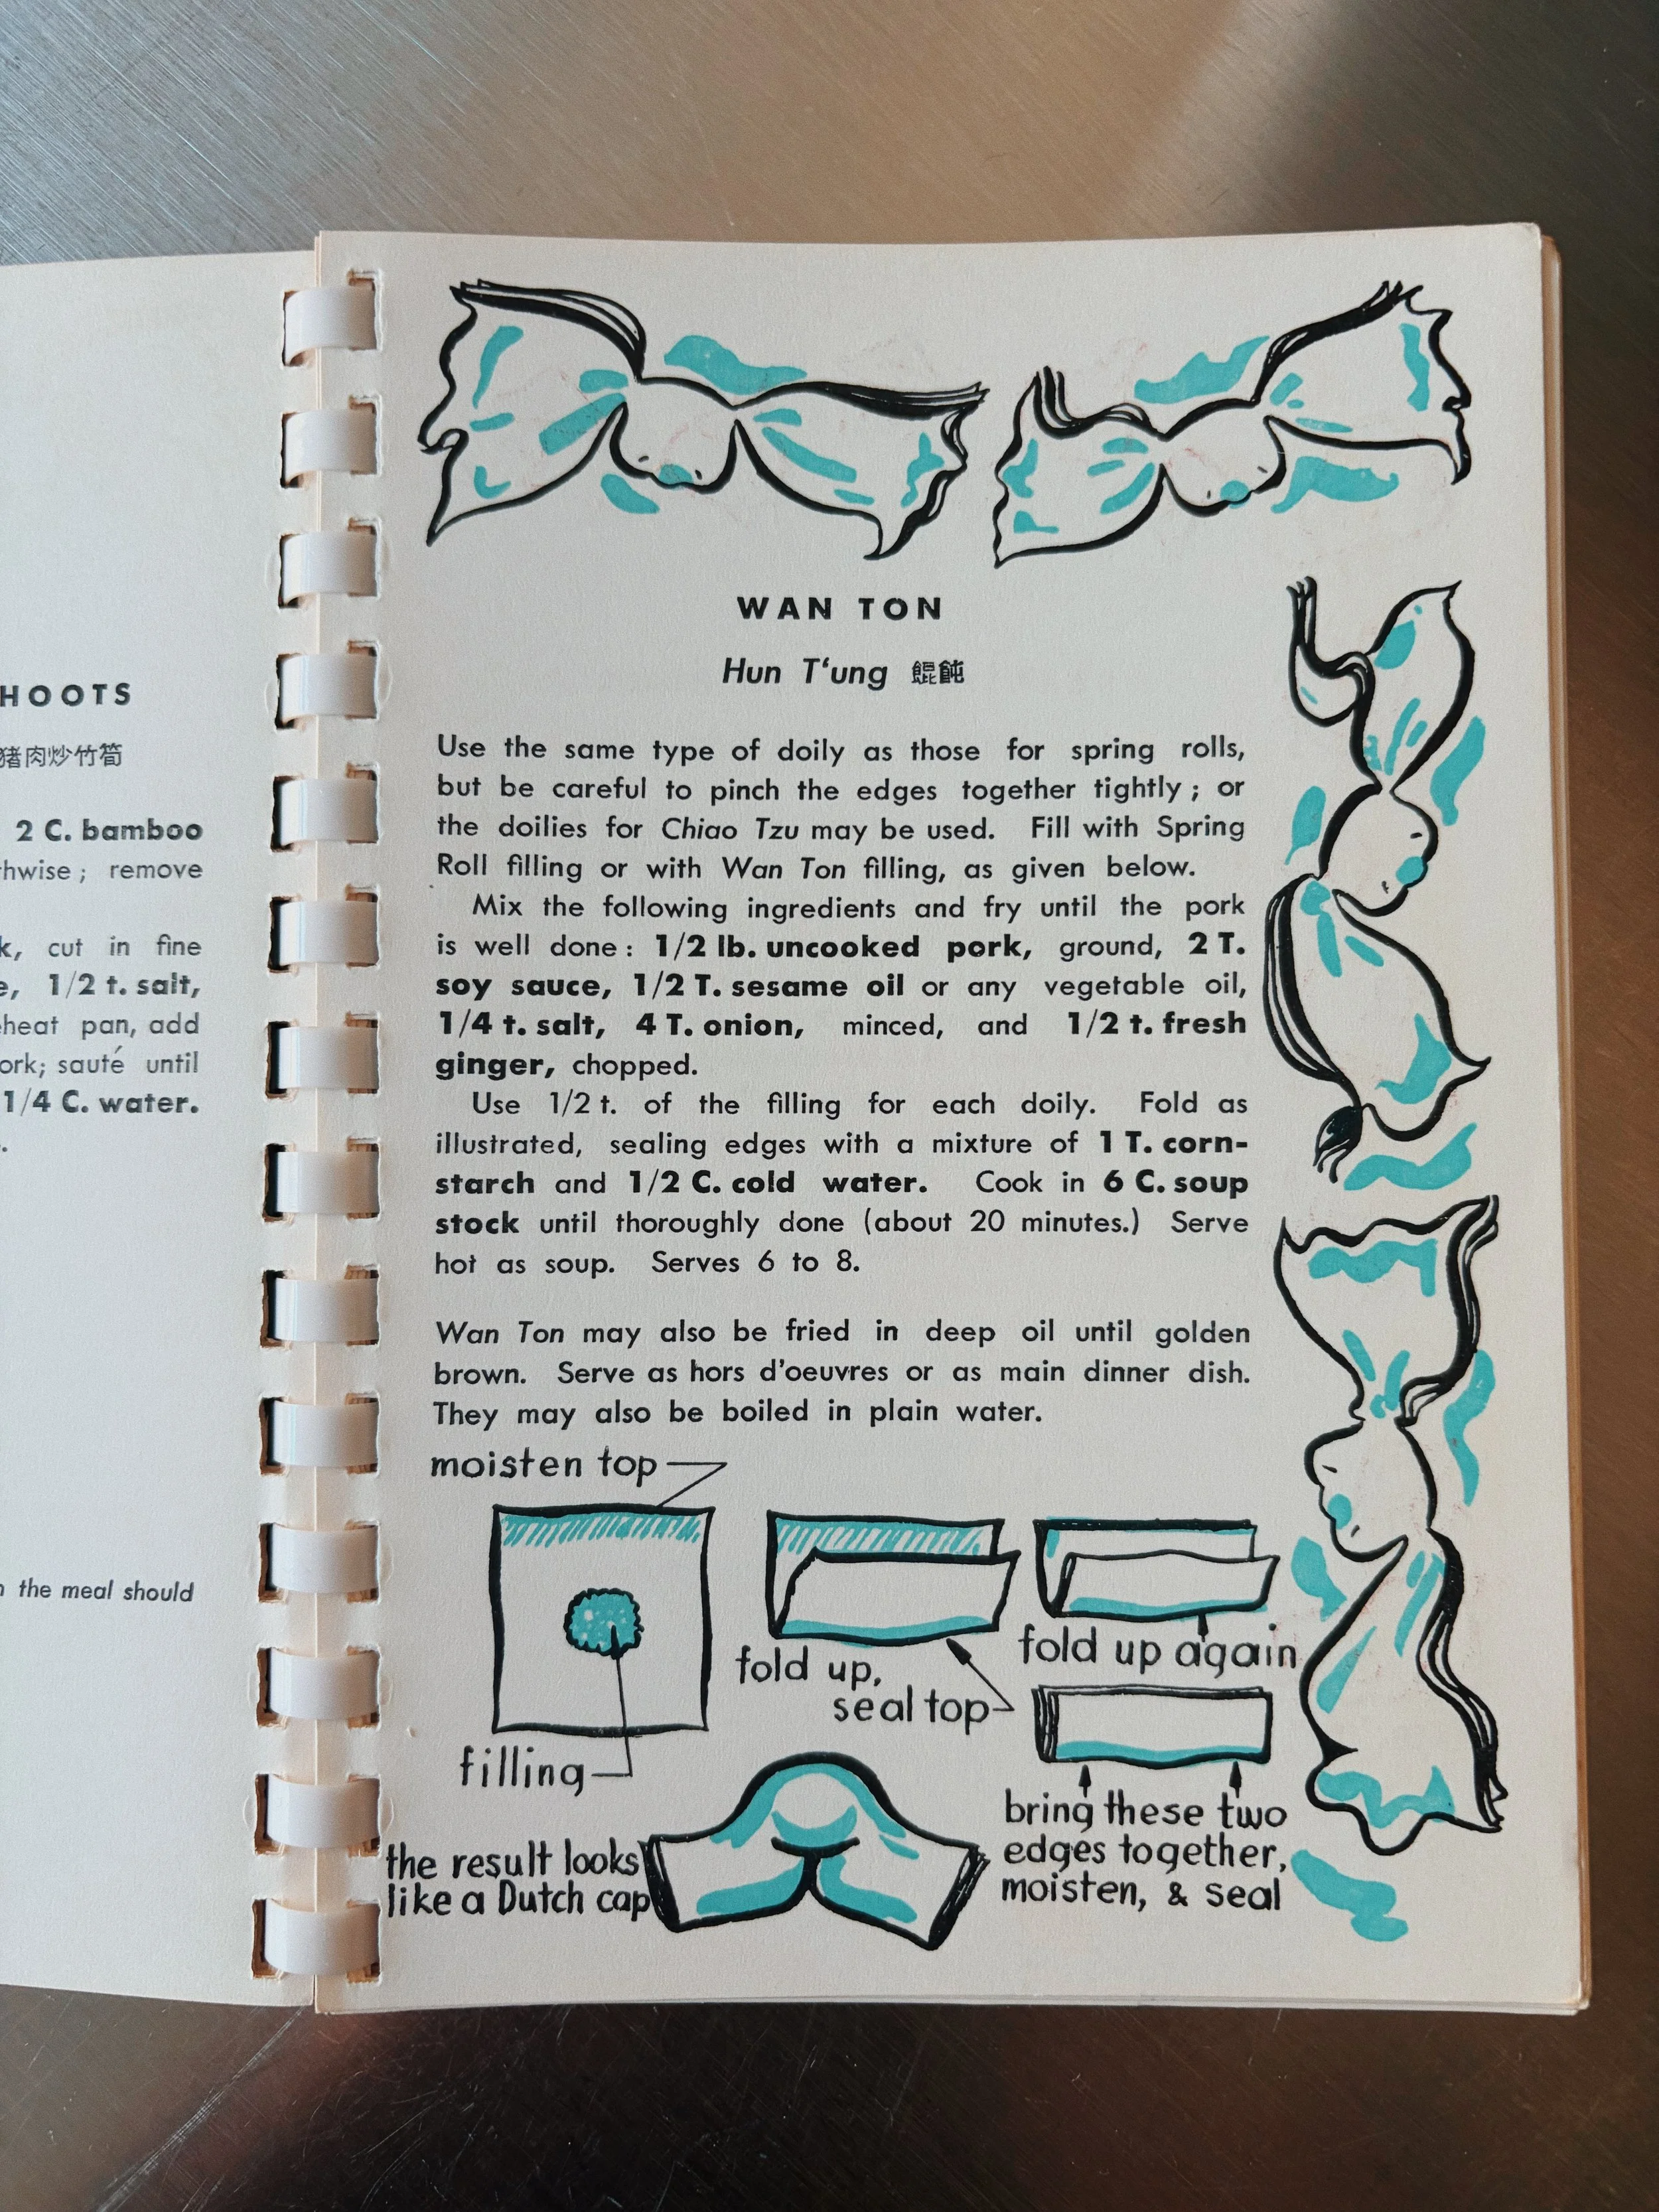 HOOTS
猪肉炒竹筍
2 C. bamboo
thwise; remove
k, cut in fine
e, 1/2 t. salt,
eheat pan, add
ork; sauté until
1/4 C. water.
the meal should
WAN TON
Hun T‘ung 餛飩
Use the same type of doily as those for spring rolls,
but be careful to pinch the edges together tightly; or
the doilies for Chiao Tzu may be used. Fill with Spring
Roll filling or with Wan Ton filling, as given below.
Mix the following ingredients and fry until the pork
is well done: 1/2 lb. uncooked pork, ground, 2 T.
soy sauce, 1/2 T. sesame oil or any vegetable oil,
1/4 t. salt, 4 T. onion, minced, and 1/2 t. fresh
ginger, chopped.
Use 1/2 t. of the filling for each doily. Fold as
illustrated, sealing edges with a mixture of 1 T. corn-
starch and 1/2 C. cold water. Cook in 6 C. soup
stock until thoroughly done (about 20 minutes.) Serve
hot as soup. Serves 6 to 8.
Wan Ton may also be fried in deep oil until golden
brown. Serve as hors d'oeuvres or as main dinner dish.
They may also be boiled in plain water.
moisten top
filling
fold up,
seal top
fold up again
bring these two
edges together,
moisten, & seal
the result looks
like a Dutch cap